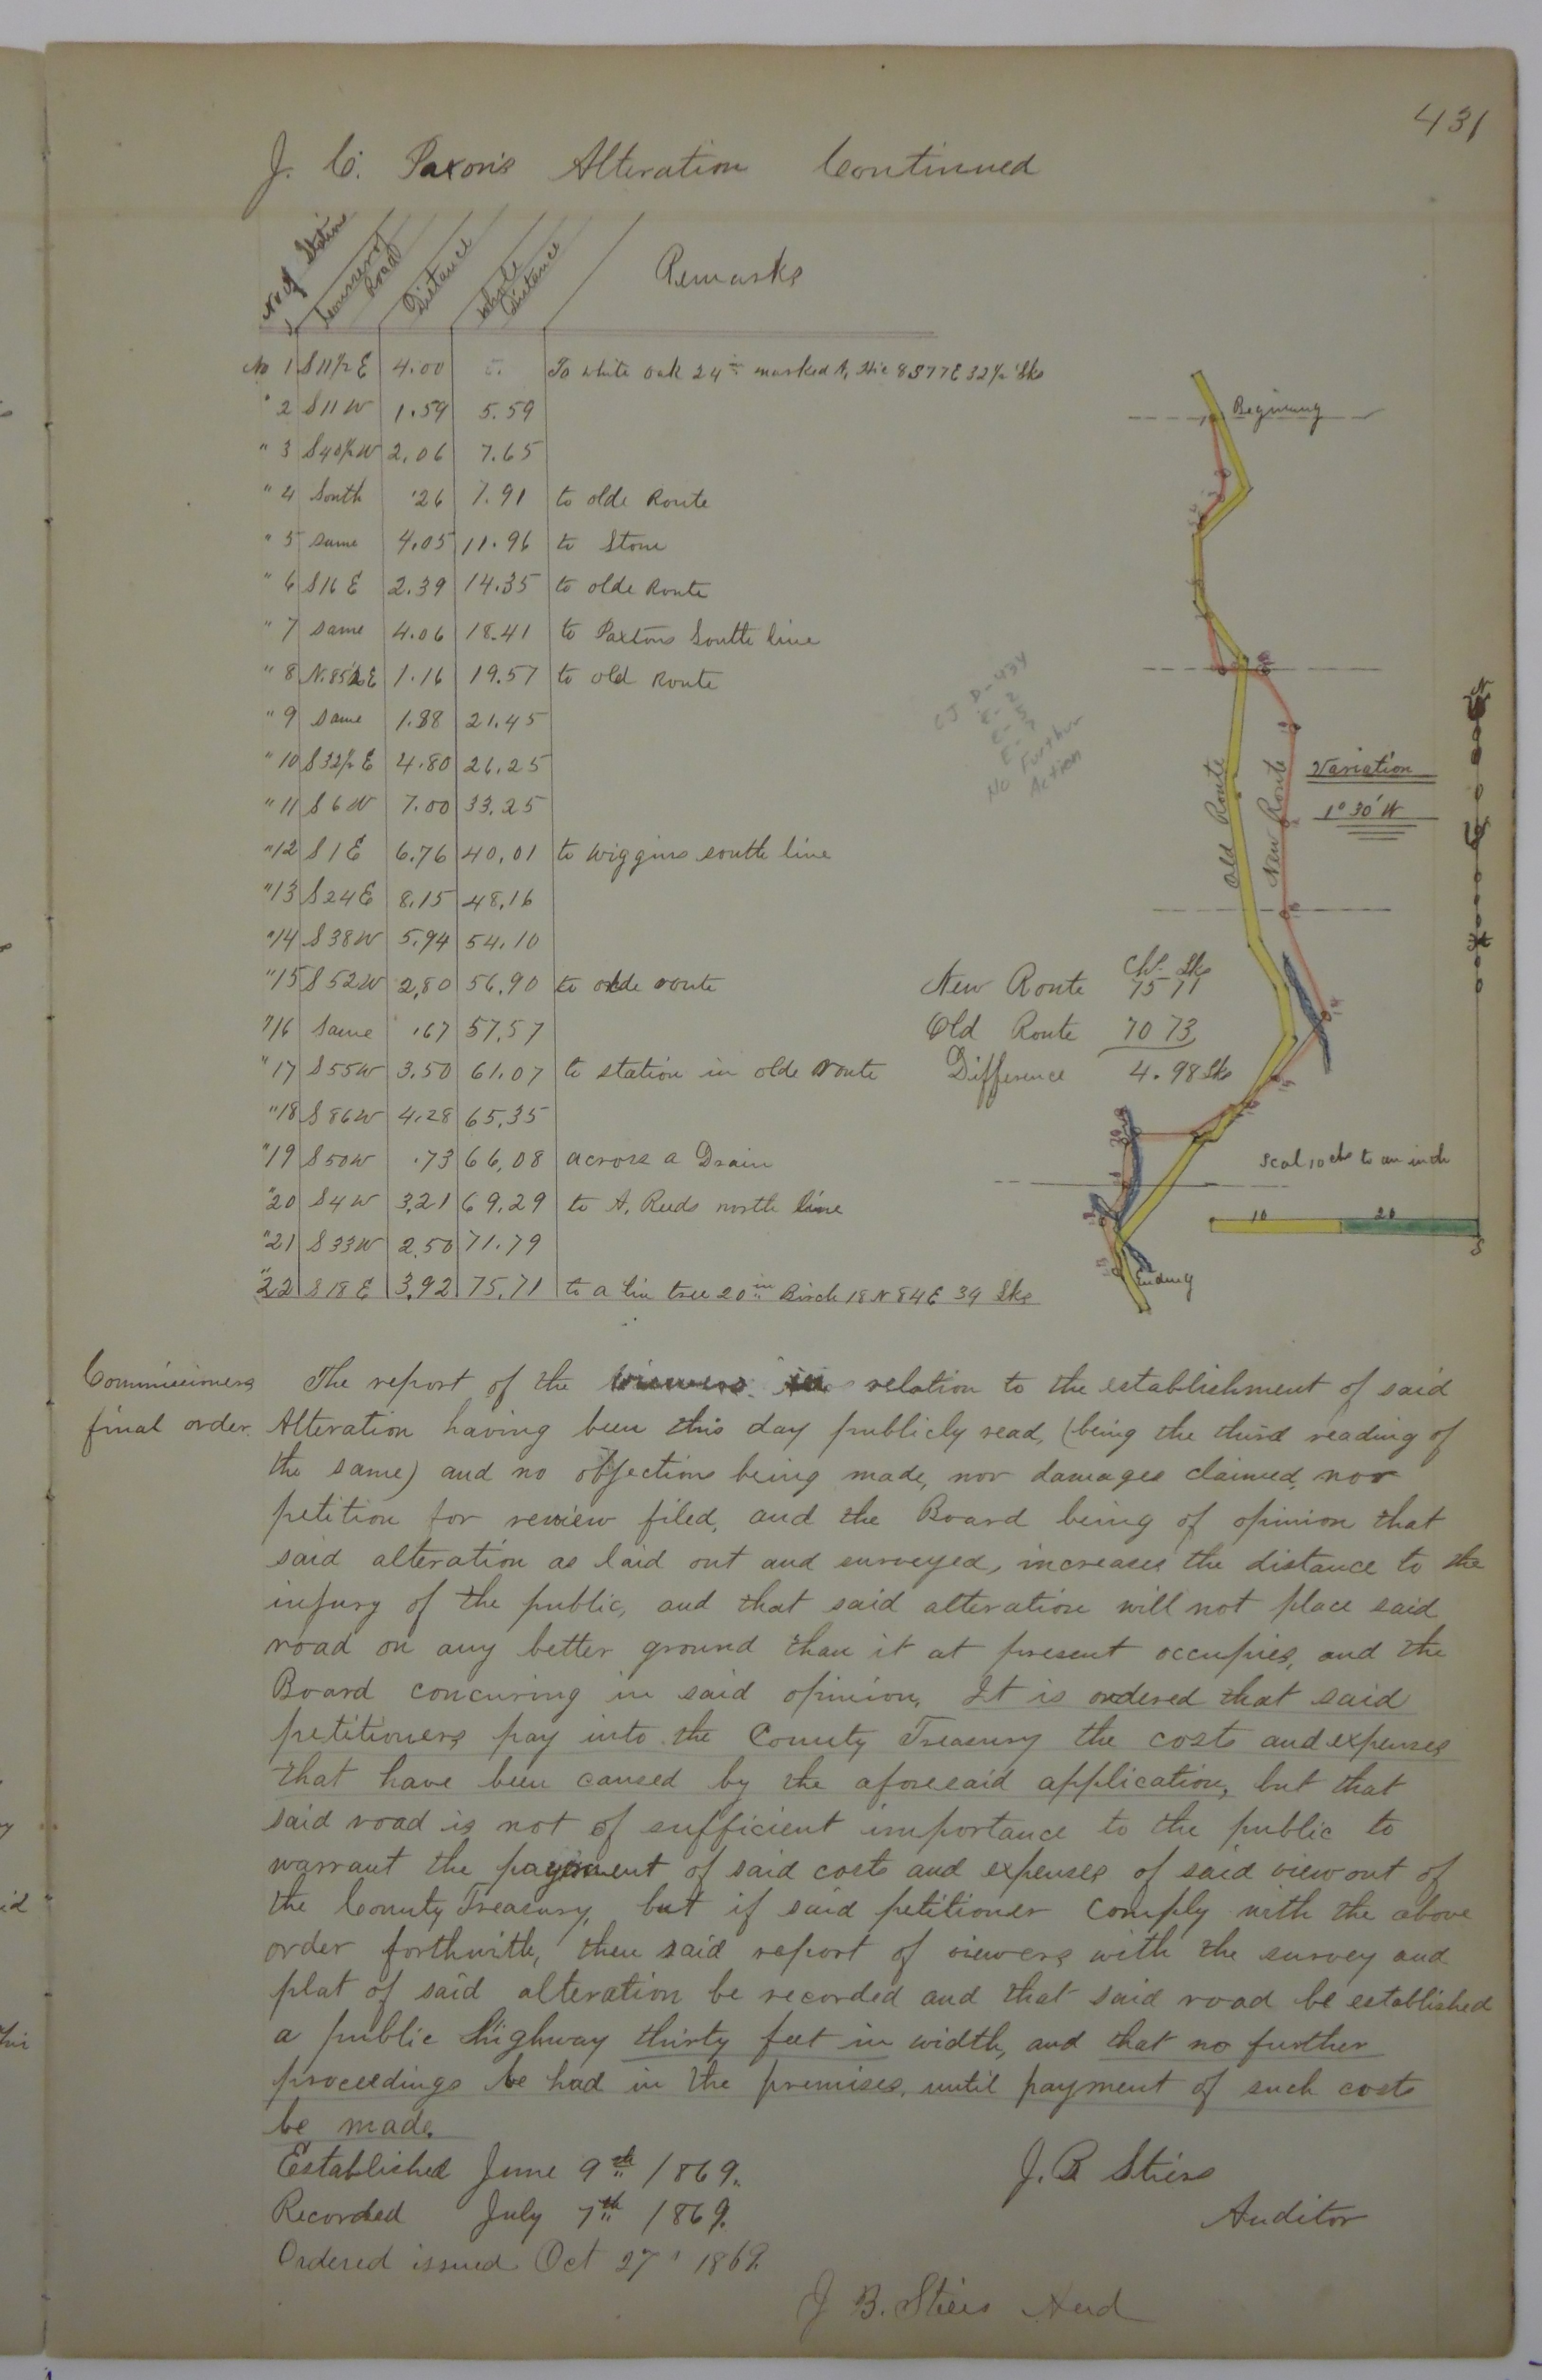 431
J. C. Paxon's Alteration Continued
No of Station
Courses of Road
Distance
Whole Distance
Remarks
No 1 S 11½ E 4.00 To white oak 24 in marked A, Hic 8 S 77 E 32½ Lks
" 2 S 11 W 1.59 5.59
" 3 S 40½ W 2.06 7.65
" 4 South .26 7.91 to olde Route
" 5 same 4.05 11.96 to Stone
" 6 S 16 E 2.39 14.35 to olde Route
" 7 same 4.06 18.41 to Paxtons South line
" 8 N. 85½ E 1.16 19.57 to old Route
" 9 same 1.88 21.45
" 10 S 32½ E 4.80 26.25
" 11 S 6 W 7.00 33.25
" 12 S 1 E 6.76 40.01 to Wiggins south line
" 13 S 24 E 8.15 48.16
" 14 S 38 W 5.94 54.10
" 15 S 52 W 2.80 56.90 to olde route
" 16 Same .67 57.57
" 17 S 55 W 3.50 61.07 to station in olde route
" 18 S 86 W 4.28 65.35
" 19 S 50 W .73 66.08 across a Drain
" 20 S 4 W 3.21 69.29 to A. Reeds north line
" 21 S 33 W 2.50 71.79
" 22 S 18 E 3.92 75.71 to a lin tree 20 in Birch 18 N 84 E 39 Lks
Begining
CJ D-434
No Further
Action
Old Route
New Route
Variation
1° 30' W
N
S
Chs. Lks
New Route 75 71
Old Route 70 73
Difference 4.98 Lks
Scal 10 chs to an inch
10 20
Ending
Commissioners
final order.
The report of the viewers in relation to the establishment of said
Alteration having been this day publicly read, (being the third reading of
the same) and no objections being made, nor damages claimed, nor
petition for review filed, and the Board being of opinion that
said alteration as laid out and surveyed, increases the distance to the
injury of the public, and that said alteration will not place said
road on any better ground than it at present occupies, and the
Board concuring in said opinion, It is ordered that said
petitioners pay into the County Treasury the costs and expenses
that have been caused by the aforesaid application, but that
said road is not of sufficient importance to the public to
warrant the payment of said costs and expenses of said view out of
the County Treasury, but if said petitioner comply with the above
order forthwith, then said report of viewers with the survey and
plat of said alteration be recorded and that said road be established
a public highway thirty feet in width, and that no further
proceedings be had in the premises, until payment of such costs
be made.
Established June 9th 1869.
Recorded July 7th 1869.
Ordered issued Oct 27" 1869.
J. B Stiers
Auditor
J B. Stiers Aud